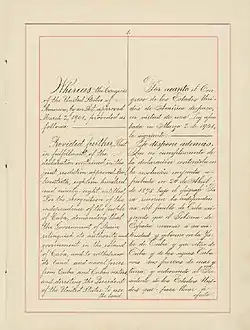 Whereas the Congress
of the United States of
America, by an Act approved
March 2, 1901, provided as
follows:
Provided further, That
in fulfillment of the
declaration contained in the
joint resolution approved April
twentieth, eighteen hundred
and ninety-eight, entitled,
"For the recognition of the
independence of the people
of Cuba, demanding that
the Government of Spain
relinquish its authority and
government in the island
of Cuba, and to withdraw
its land and naval forces
from Cuba and Cuban waters,
and directing the President
of the United States to use
the land
Por cuanto el Con-
greso de los Estados Uni-
dos de América dispuso,
en virtud de una Ley apro-
bada en Marzo 2 de 1901,
lo siguiente:
Se dispone además,
Que en cumplimiento de
la declaración contenida en
la resolución conjunta a-
probada en 20 de Abril
de 1898
del pueblo de Cuba
giendo que el Gobierno de
España renuncie a su au-
toridad y gobierno en la Isla
de Cuba y que retire de
Cuba y de las aguas Cuba-
nas sus fuerzas de mar y
tierra, y ordenando al Pre-
sidente de los Estados Uni-
dos que